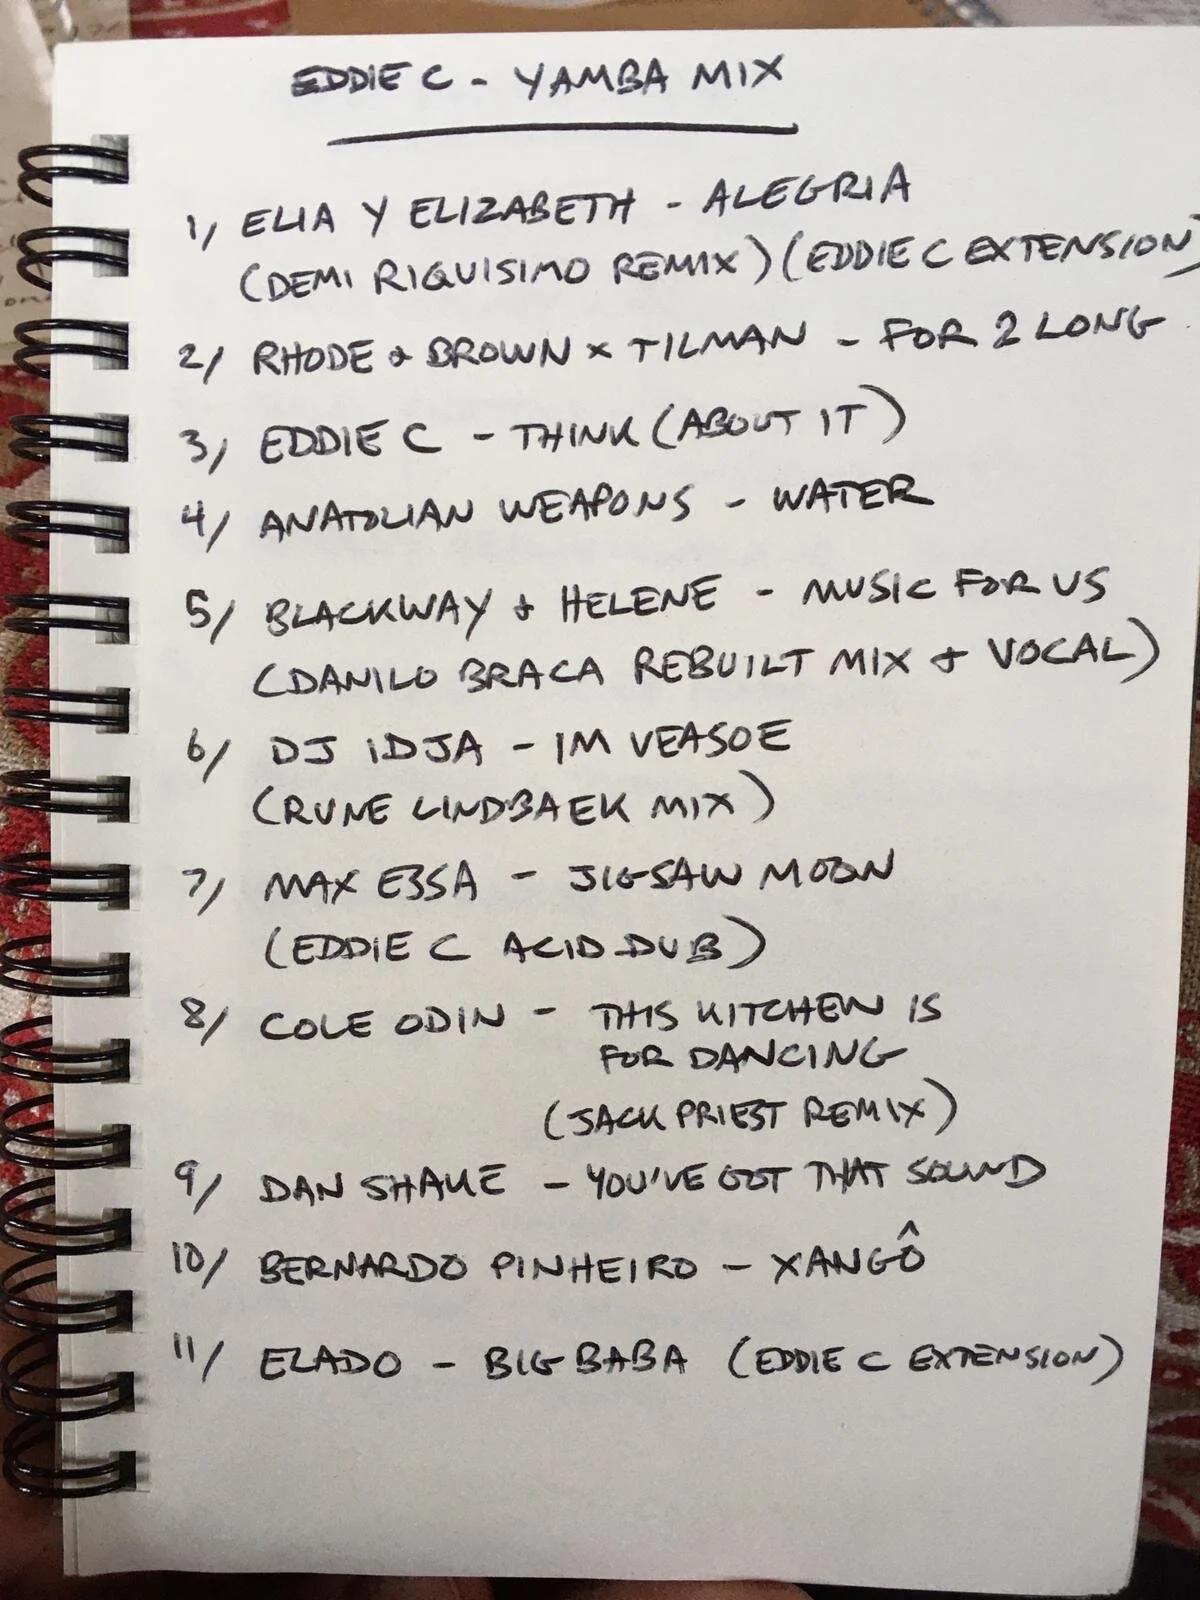 EDDIE C - YAMBA MIX
1/ ELIA Y ELIZABETH - ALEGRIA
(DEMI RIQUISIMO REMIX) (EDDIE C EXTENSION)
2/ RHODE & BROWN x TILMAN - FOR 2 LONG
3/ EDDIE C - THINK (ABOUT IT)
4/ ANATOLIAN WEAPONS - WATER
5/ BLACKWAY & HELENE - MUSIC FOR US
(DANILO BRACA REBUILT MIX & VOCAL)
6/ DJ IDJA - IM VEASOE
(RUNE LINDBAEK MIX)
7/ MAX ESSA - JIGSAW MOON
(EDDIE C ACID DUB)
8/ COLE ODIN - THIS KITCHEN IS
FOR DANCING
(JACK PRIEST REMIX)
9/ DAN SHAKE - YOU'VE GOT THAT SOUND
10/ BERNARDO PINHEIRO - XANGÔ
11/ ELADO - BIG BABA (EDDIE C EXTENSION)